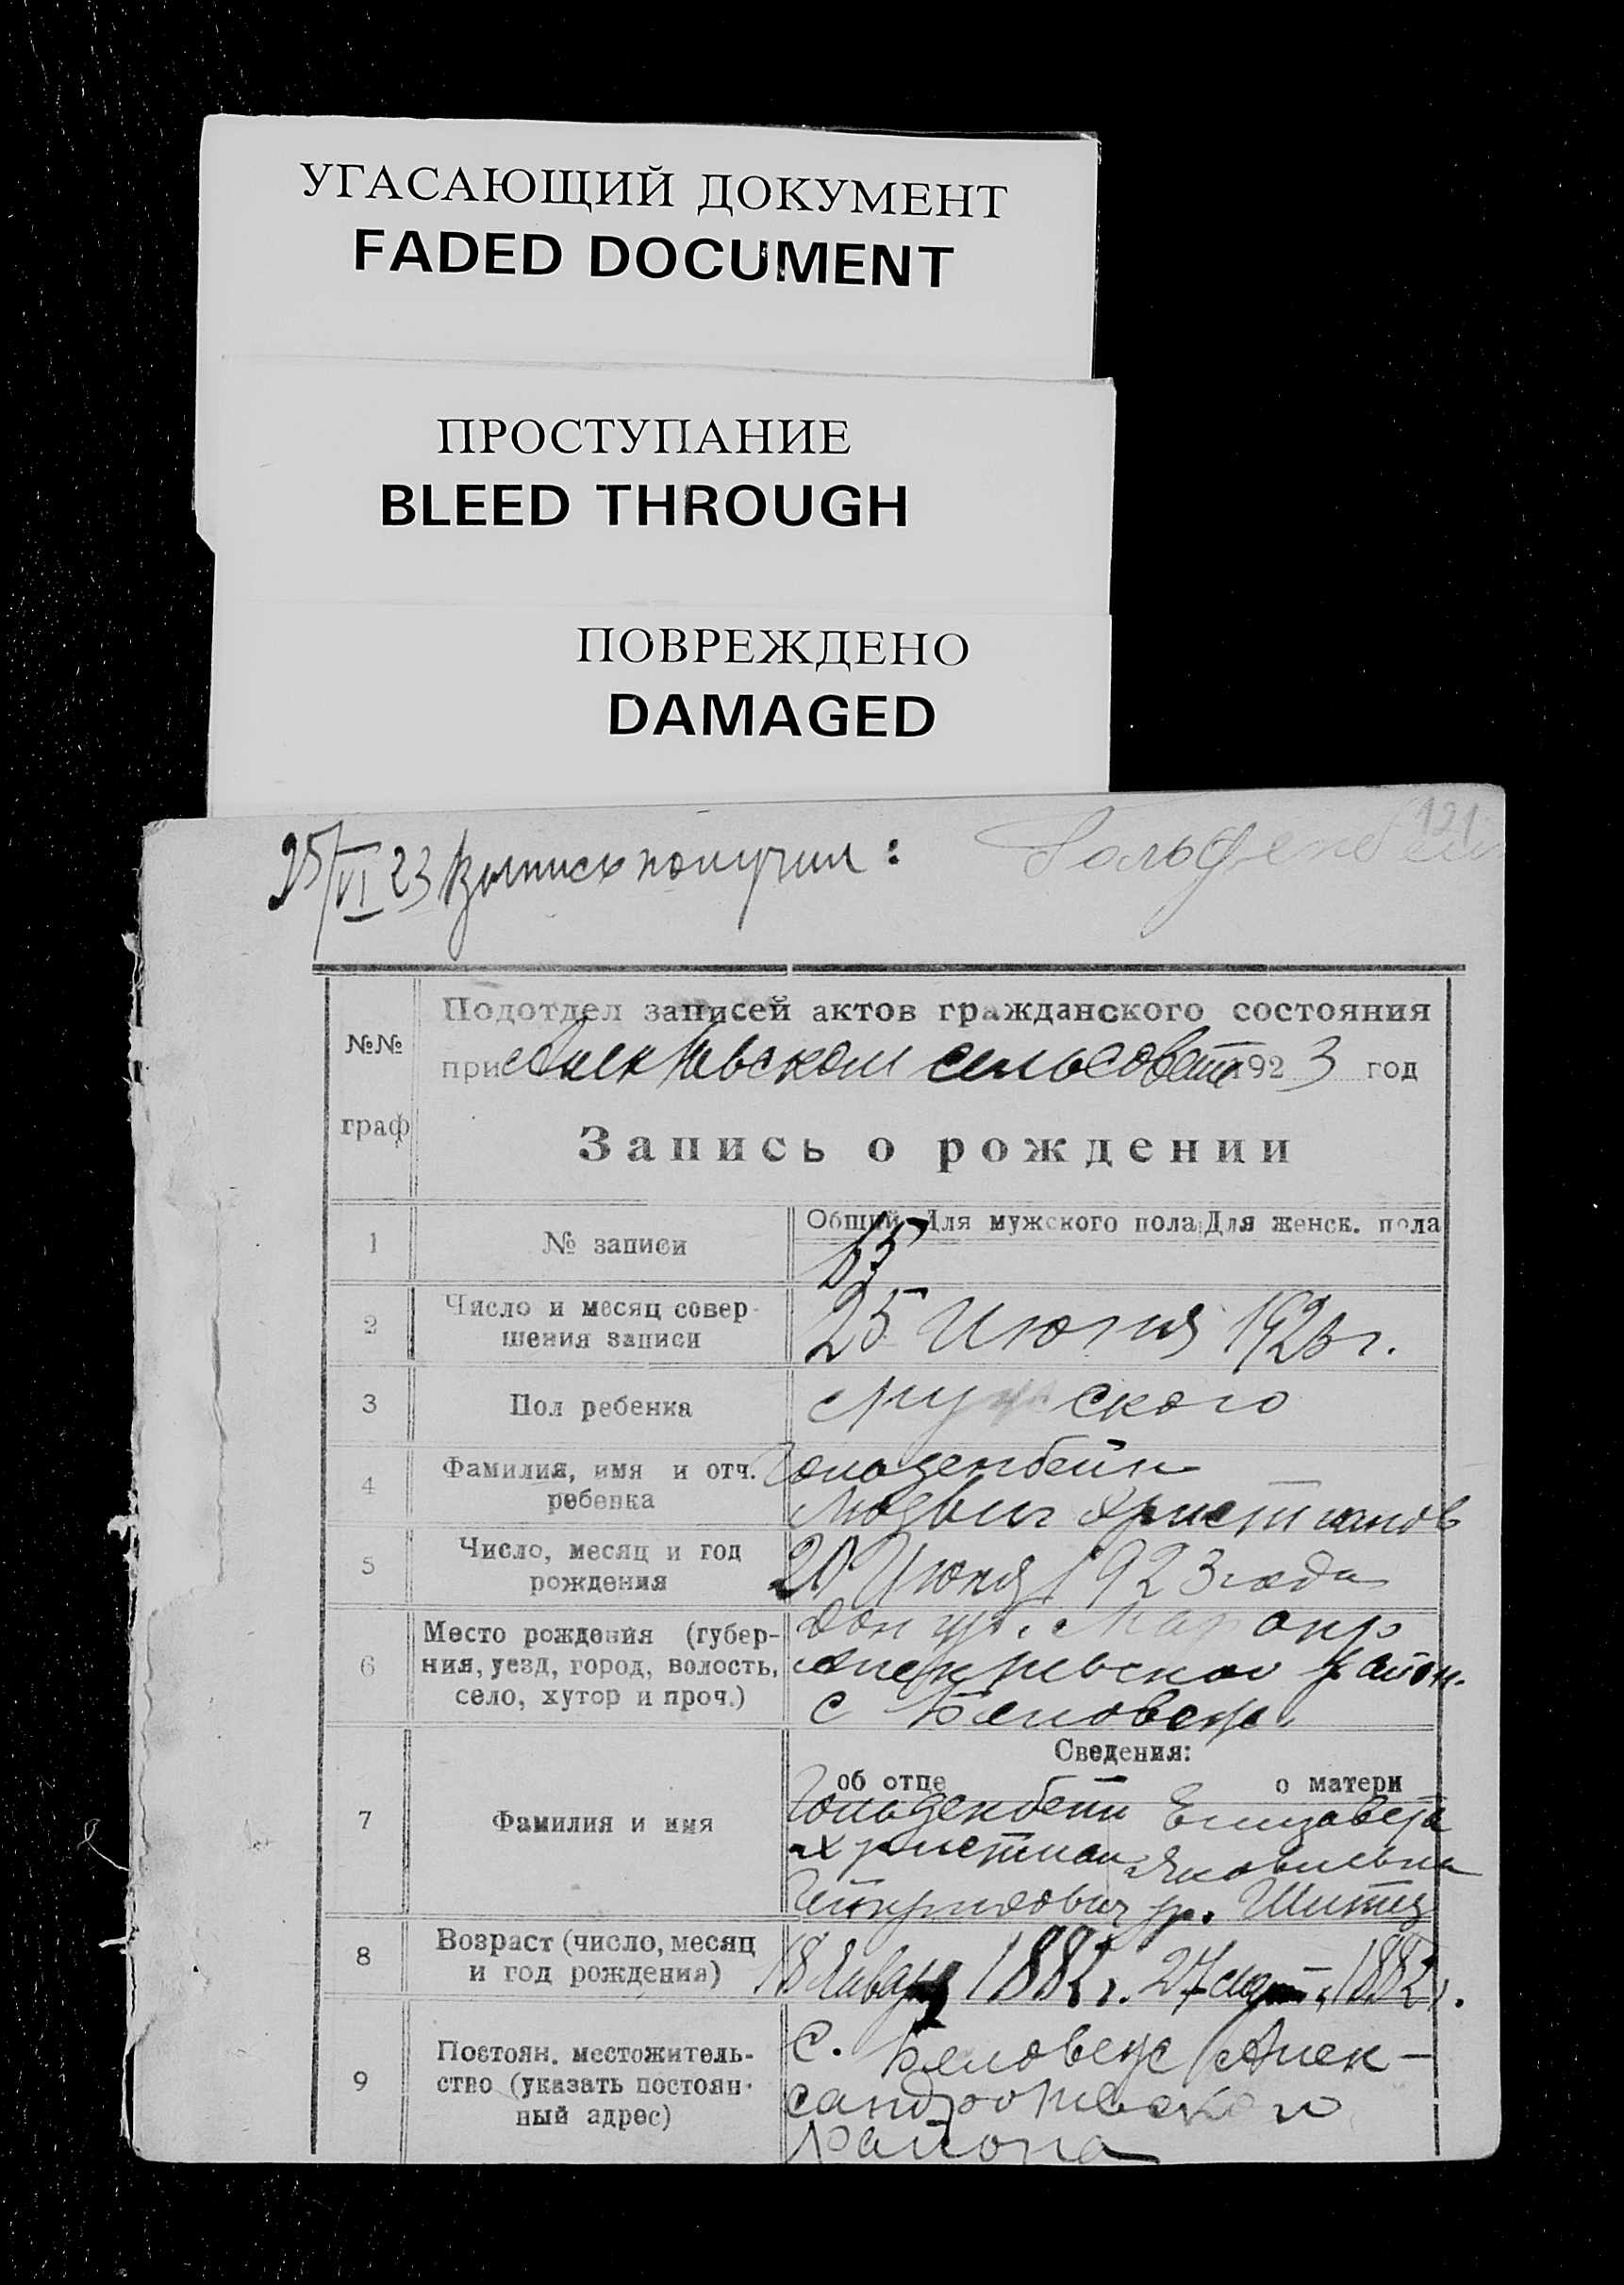 УГАСАЮЩИЙ ДОКУМЕНТ
FADED DOCUMENT
ПРОСТУПАНИЕ
BLEED THROUGH
ПОВРЕЖДЕНО
DAMAGED
121
25/VI 23 Выпись получил: Гольденбейн
№№ граф
Подотдел записей актов гражданского состояния
при сельсовете 1923 год
Запись о рождении
Общий Для мужского пола Для женск. пола
1 № записи 65
2 Число и месяц совер-
шения записи 25 Июня 1923 г.
3 Пол ребенка Мужского
4 Фамилия, имя и отч. Гольденбейн
ребенка Людвиг Христианов
5 Число, месяц и год
рождения 20 Июня 1923 года
6 Место рождения (губер-
ния, уезд, город, волость,
село, хутор и проч.)
Дон губ. Мар окр
район.
с Беловеж.
Сведения:
об отце о матери
7 Фамилия и имя
Гольденбейн Елизавета
Христиан Яковлевна
р. Шитц
8 Возраст (число, месяц
и год рождения) 18 Января 1882 г. 27 март. 1882 г.
9 Постоян. местожитель-
ство (указать постоян-
ный адрес)
С. Беловеж Алек-
сандроневского
района